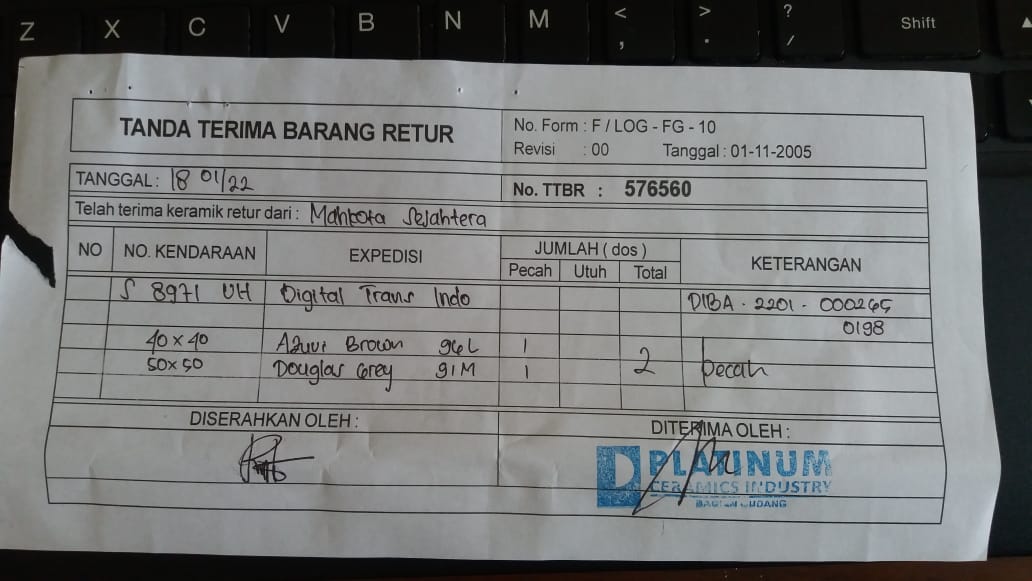 Z X C V B N M < , > . ? / Shift
TANDA TERIMA BARANG RETUR
No. Form : F / LOG - FG - 10
Revisi : 00 Tanggal : 01-11-2005
TANGGAL : 18 01/22
No. TTBR : 576560
Telah terima keramik retur dari : Mahkota Sejahtera
NO NO. KENDARAAN EXPEDISI JUMLAH ( dos ) KETERANGAN
Pecah Utuh Total
S 8971 UH Digital Trans Indo DIBA - 2201 - 000265
0198
40 x 40 Azuvi Brown 96L 1
50x50 Douglas Grey 91M 1 2 pecah
DISERAHKAN OLEH :
DITERIMA OLEH :
PLATINUM
CERAMICS INDUSTRY
BAGIAN GUDANG